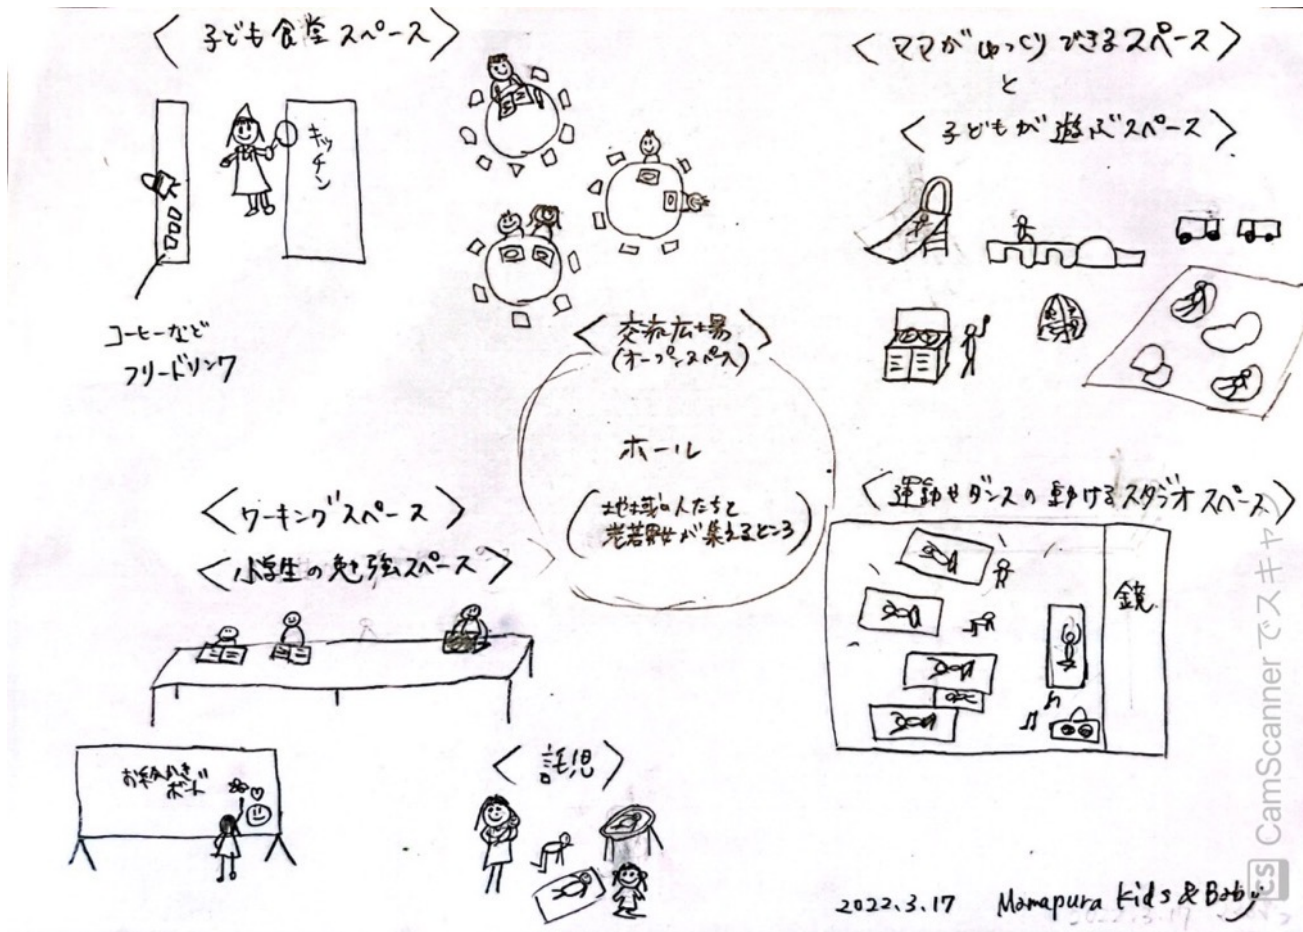 <子ども食堂スペース>
キッチン
コーヒーなど
フリードリンク
<ママがゆっくりできるスペース>
と
<子どもが遊ぶスペース>
<交流広場
(オープンスペース)>
ホール
(地域の人たちと
老若男女が集えるところ)
<ワーキングスペース>
<小学生の勉強スペース>
お絵かき
ボード
<運動やダンスの動けるスタジオスペース>
鏡
<託児>
2022.3.17 Mamapura Kids & Baby
CS CamScannerでスキャン